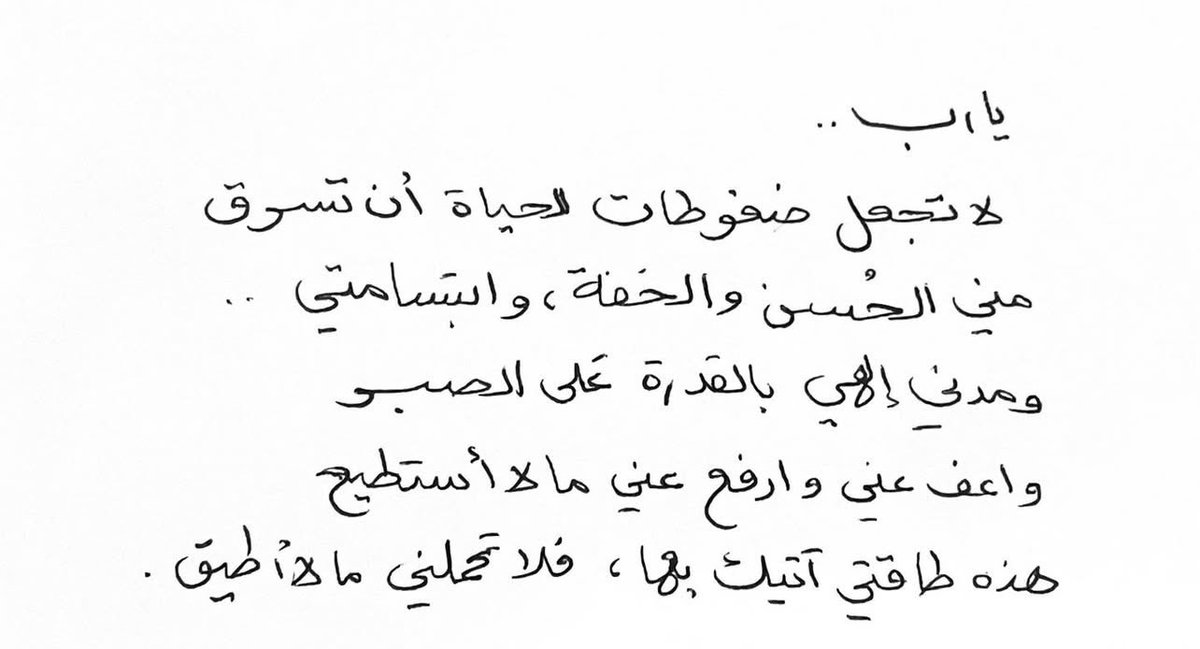 يا رب ..
لا تجعل ضغوطات الحياة أن تسرق
مني الحُسن والخفة، وابتسامتي ..
ومدني إلهي بالقدرة على الصبر
واعف عني وارفع عني ما لا أستطيع
هذه طاقتي آتيك بها، فلا تحملني ما لا أطيق.